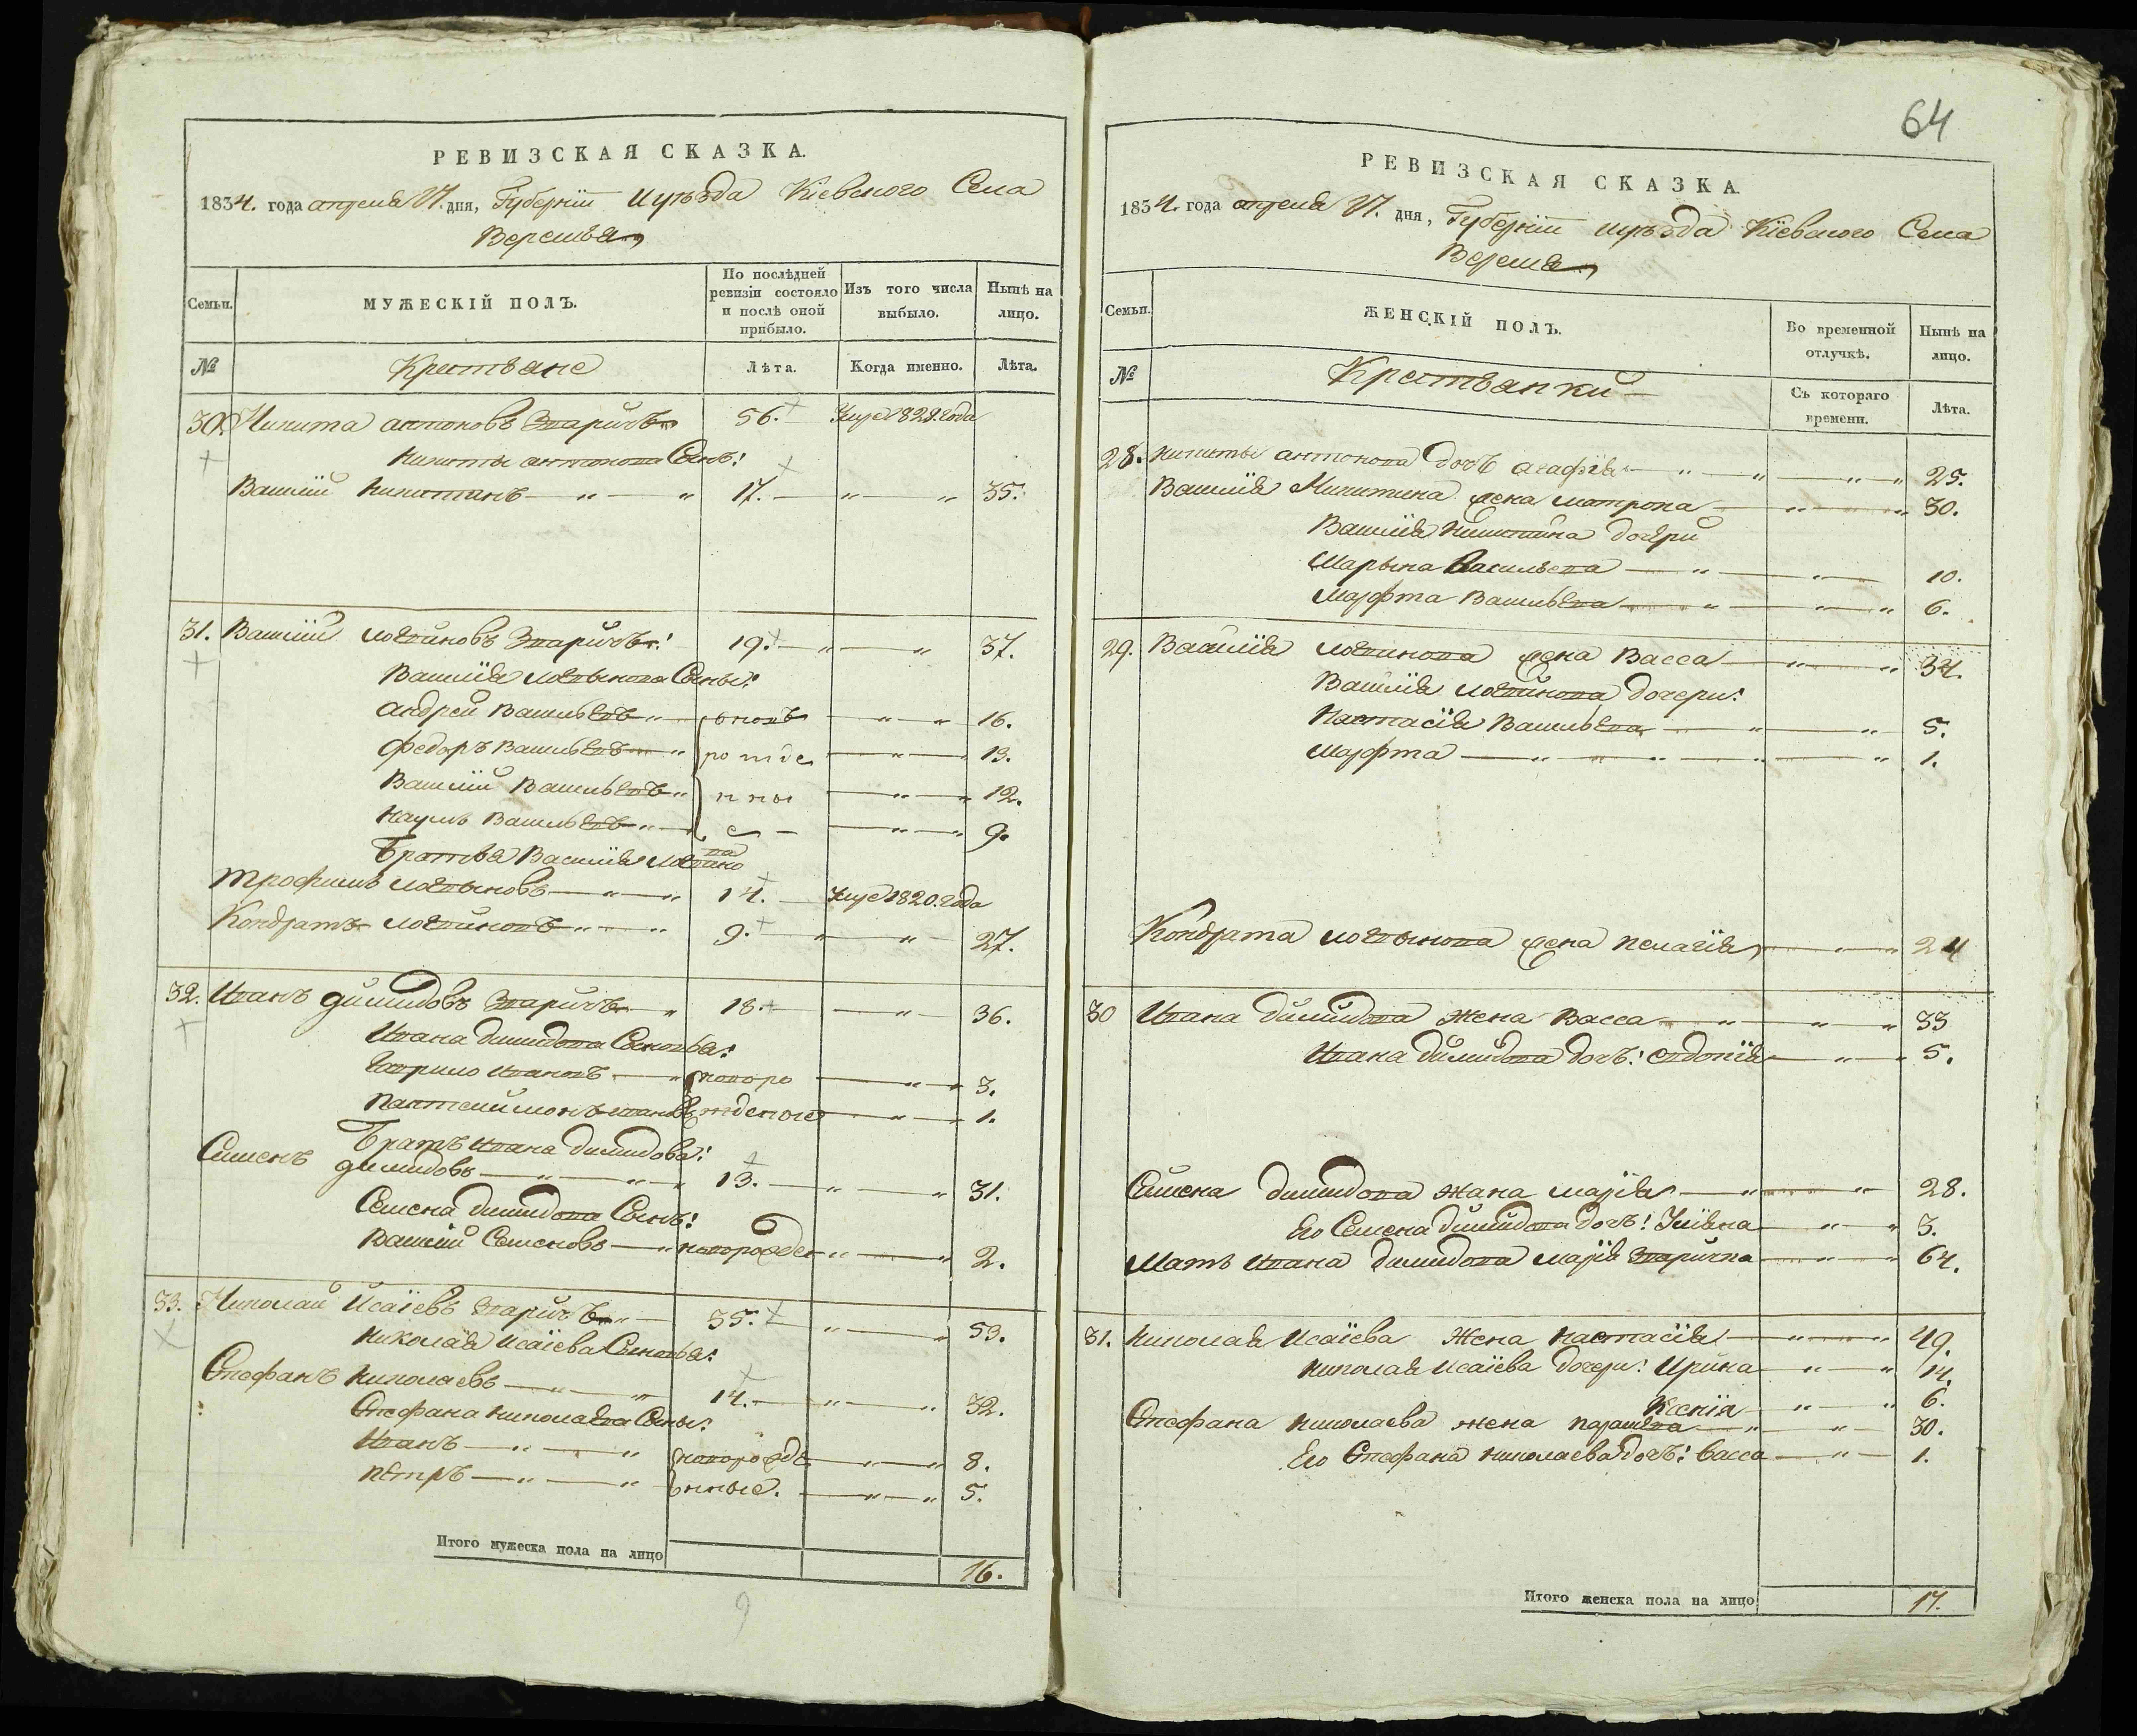 РЕВИЗСКАЯ СКАЗКА.
1834. года апреля 17. дня, Губернiи и уѣзда Кiевского Села
Веремья
Семьи.
МУЖЕСКIЙ ПОЛЪ.
По послѣдней ревизiи состояло и послѣ оной прибыло.
Изъ того числа выбыло.
Нынѣ на лицо.
№
Крестьяне
Лѣта.
Когда именно.
Лѣта.
30. Никита антоновъ 56. 1829. года
Никиты антонова Сынъ:
Василiй Никитинъ 17. 35.
31. Василiй 19. 37.
Василiя Сыны:
андрей Васильевъ новъ 16.
федоръ Васильевъ рожде 13.
Василiй Васильевъ нны 12.
Наумъ Васильевъ е 9.
Братья Василiя
Трофимъ 14. 1820. года
Кондратъ 9. 27.
32. Иванъ димидовъ 18. 36.
Ивана димидова Сыновья:
Гаврило Ивановъ новоро 3.
Пантелимонъ Ивановъ жденые 1.
Братъ Ивана димидова:
Семенъ димидовъ 13. 31.
Семена димидова Сынъ:
Василiй Семеновъ новорожде 2.
33. Николай Исаiевъ 35. 53.
Николая Исаiева Сыновья:
Стефанъ Николаевъ 14. 32.
Стефана Николаева Сыны:
Иванъ новорожде 8.
Петръ нные. 5.
Итого мужеска пола на лицо
16.
9
64
РЕВИЗСКАЯ СКАЗКА.
1834. года апреля 17. дня, Губернiи и уѣзда Кiевского Села
Веремья
Семьи.
ЖЕНСКIЙ ПОЛЪ.
Во временной отлучкѣ.
Нынѣ на лицо.
№
Крестьянки
Съ котораго времени.
Лѣта.
28. Никиты антонова дочь агафiя 25.
Василiя Никитина жена матрона 30.
Василiя Никитина дочери
Марьяна Васильева 10.
Марфта Васильева 6.
29. Василiя жена Васса 34.
Василiя дочери:
Настасiя Васильева 5.
Марфта 1.
Кондрата жена пелагiя 24
30 Ивана димидова жена Васса 33
Ивана димидова дочь: евдокiя 5.
Семена димидова жана марiя 28.
Его Семена димидова дочь: Улiяна 3.
Мать Ивана димидова марiя 64.
31. Николая Исаiева Жена настасiя 49.
Николая Исаiева дочери: Ирина 14.
Ксенiя 6.
Стефана Николаева жена 30.
Его Стефана Николаева дочь: васса 1.
Итого женска пола на лицо
17.